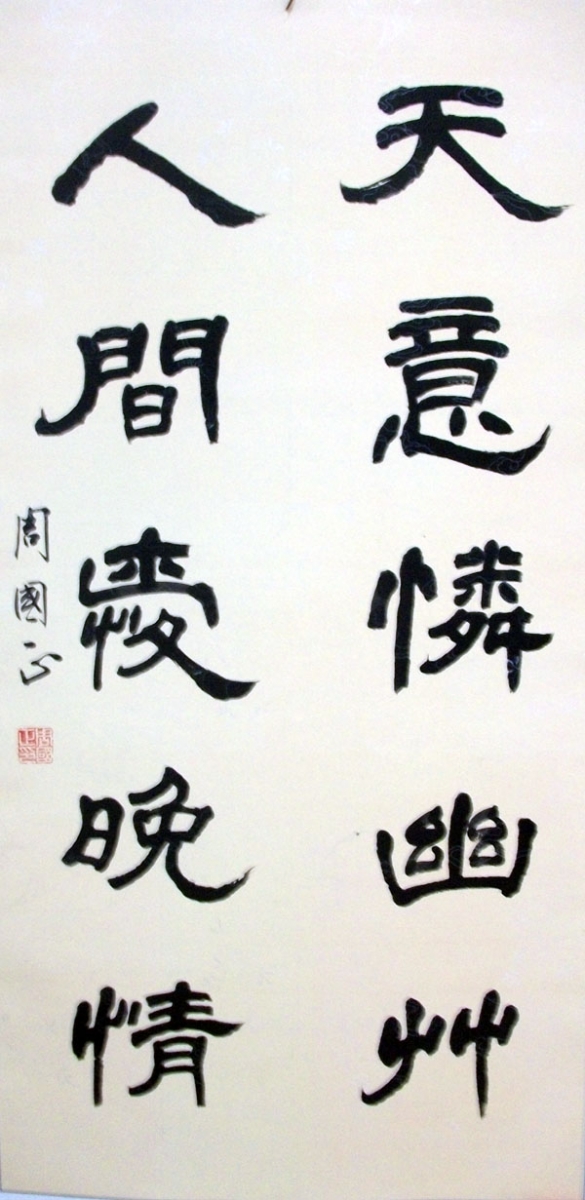 天意憐幽艸
人間愛晚情
周國正